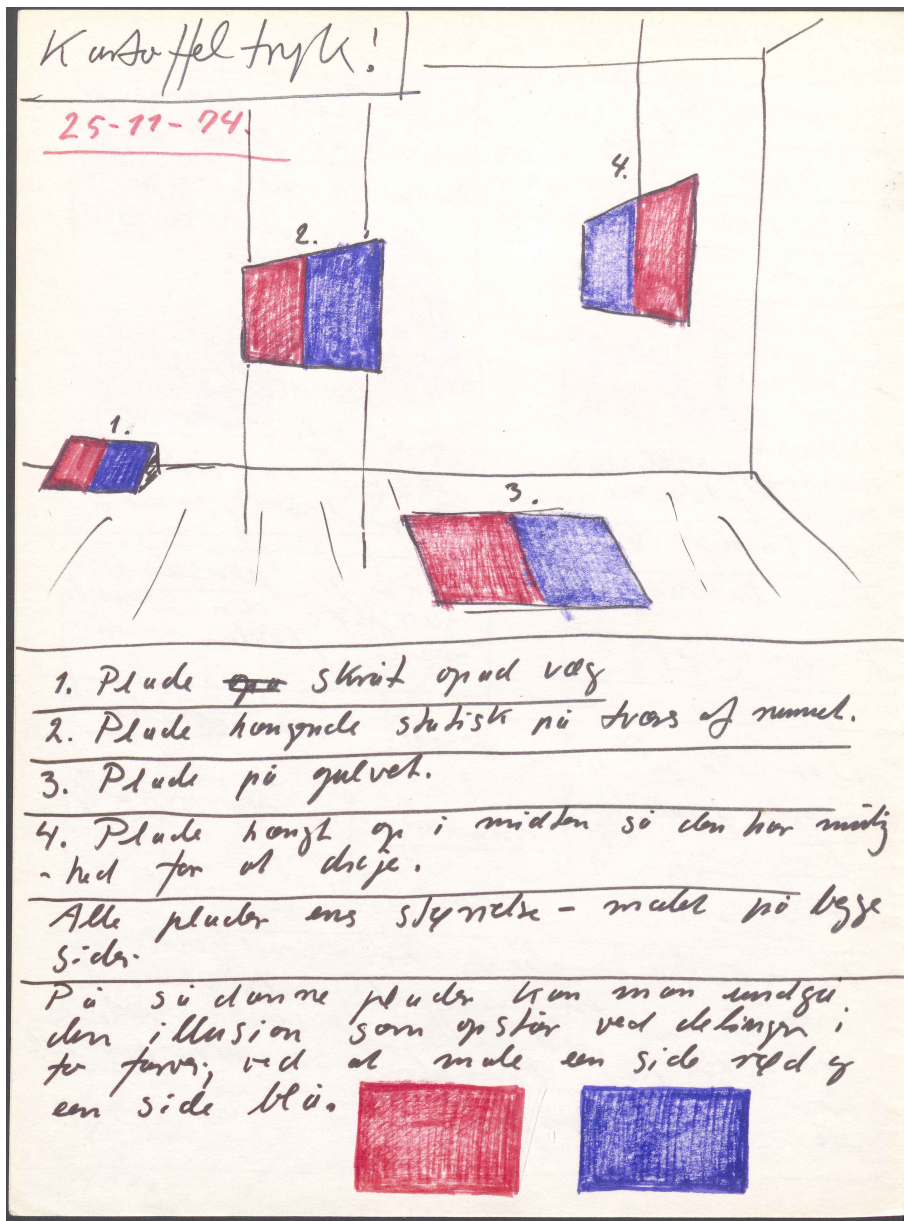 Kartoffeltryk!
25-11-74.
4.
2.
1.
3.
1. Plade skråt opad væg
2. Plade hængende statisk på tværs af rummet.
3. Plade på gulvet.
4. Plade hængt op i midten så den har mulig
-hed for at dreje.
Alle plader ens størrelse - malet på begge
sider.
På sådanne plader kan man undgå
den illusion som opstår ved delingen i
to farver, ved at male een side rød og
een side blå.